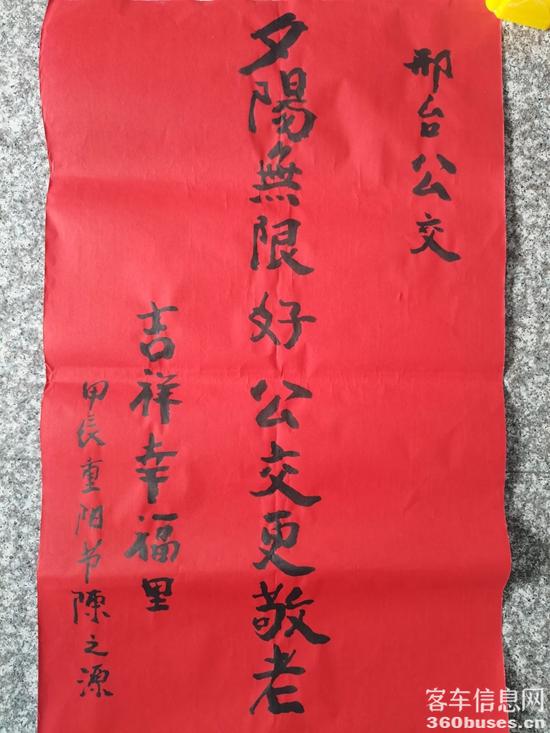 邢台公交
夕陽無限好公交更敬老
吉祥幸福里
甲辰重阳节陈之源
客车信息网
360buses.cn